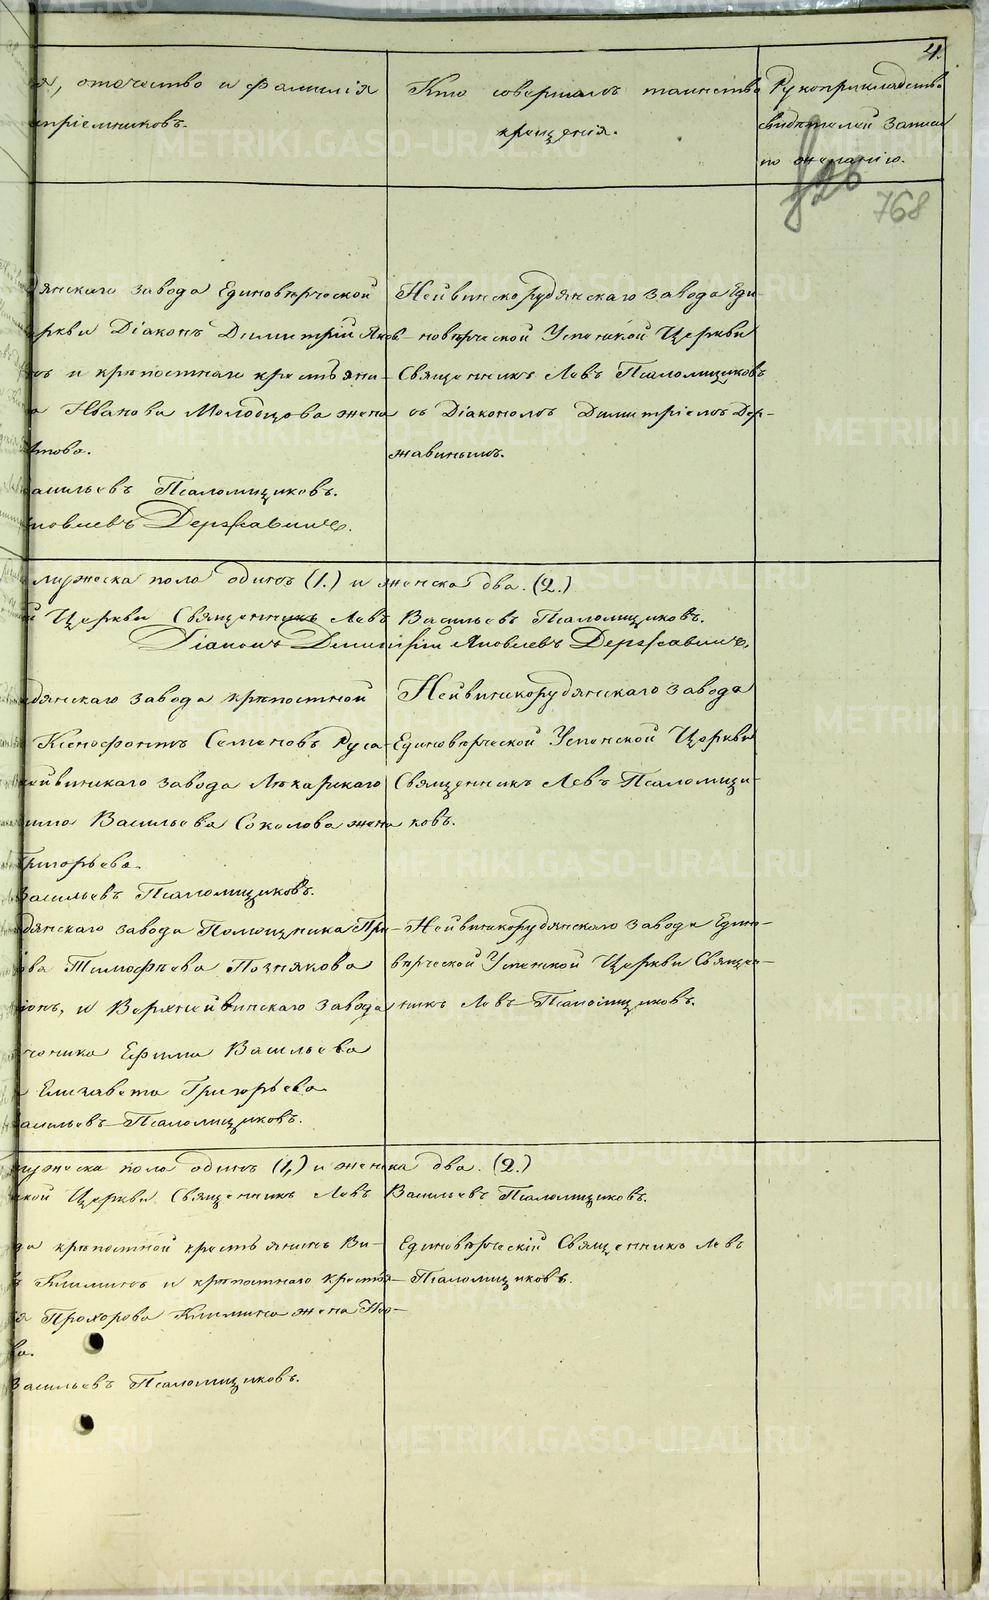 4.
я, отечество и фамилія
спріемниковъ.
Кто совершалъ таинство
крещенія.
Рукоприкладство
свидѣтелей записи
по желанію.
768
дянскаго завода Единовѣрческой
еркви Діаконъ Димитрій Яков-
въ и крѣпостнаго крестьяни-
а Иванова Молодцова жена
ьтова.
асильевъ Псаломщиковъ.
ковлевъ Державинъ.
Нейвинскорудянскаго завода Еди-
новѣрческой Успенской Церкви
Священникъ Левъ Псаломщиковъ
съ Діакономъ Димитріемъ Дер-
жавинымъ.
мужеска пола одинъ (1.) и женска два. (2.)
й Церкви Священникъ Левъ Васильевъ Псаломщиковъ.
Діаконъ Димитрій Яковлевъ Державинъ.
дянскаго завода крѣпостной
Ксенофонтъ Семеновъ Руса-
нейвинскаго завода Лѣкарскаго
има Васильева Соколова жена
Григорьева.
Васильевъ Псаломщиковъ.
Нейвинскорудянскаго завода
Единовѣрческой Успенской Церкви
Священникъ Левъ Псаломщи-
ковъ.
дянскаго завода Помощника При-
ова Тимофѣева Познякова
іонъ, и Верхнейвинскаго завода
ченика Ефима Васильева
Елизавета Григорьева
асильевъ Псаломщиковъ.
Нейвинскорудянскаго завода Едино-
вѣрческой Успенской Церкви Священ-
никъ Левъ Псаломщиковъ.
мужеска пола одинъ (1.) и женска два. (2.)
ской Церкви Священникъ Левъ Васильевъ Псаломщиковъ.
да крѣпостной крестьянинъ Ви-
ъ Климинъ и крѣпостнаго крестья-
я Прохорова Климина жена
ва.
Васильевъ Псаломщиковъ.
Единовѣрческій Священникъ Левъ
Псаломщиковъ.
METRIKI.GASO-URAL.RU